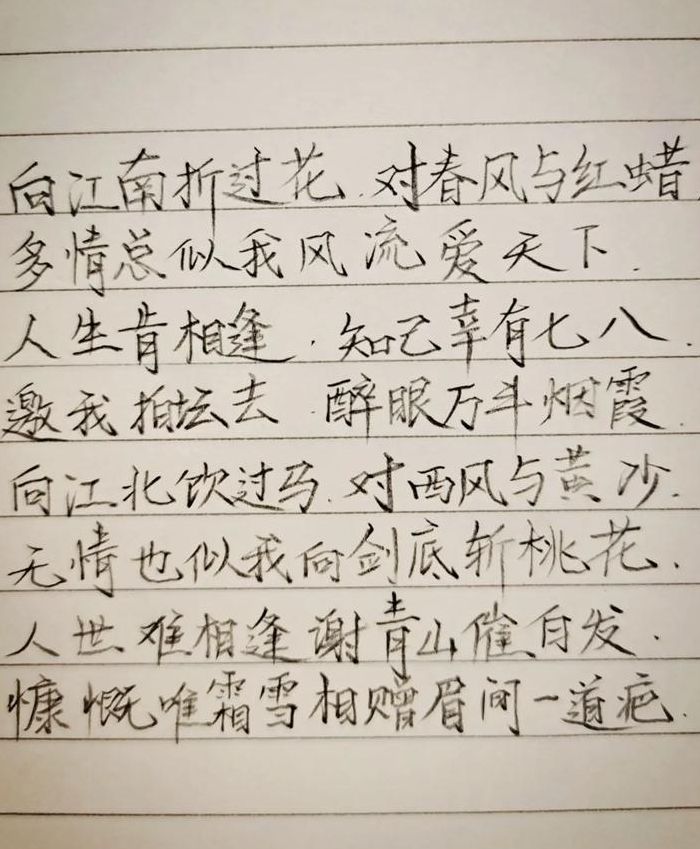 向江南折过花.对春风与红蜡
多情总似我风流爱天下.
人生肯相逢.知己幸有七八.
邀我拍坛去 醉眼万斗烟霞.
向江北饮过马.对西风与黄沙.
无情也似我向剑底斩桃花.
人世难相逢谢青山催白发.
慷慨唯霜雪相赠眉间一道疤.